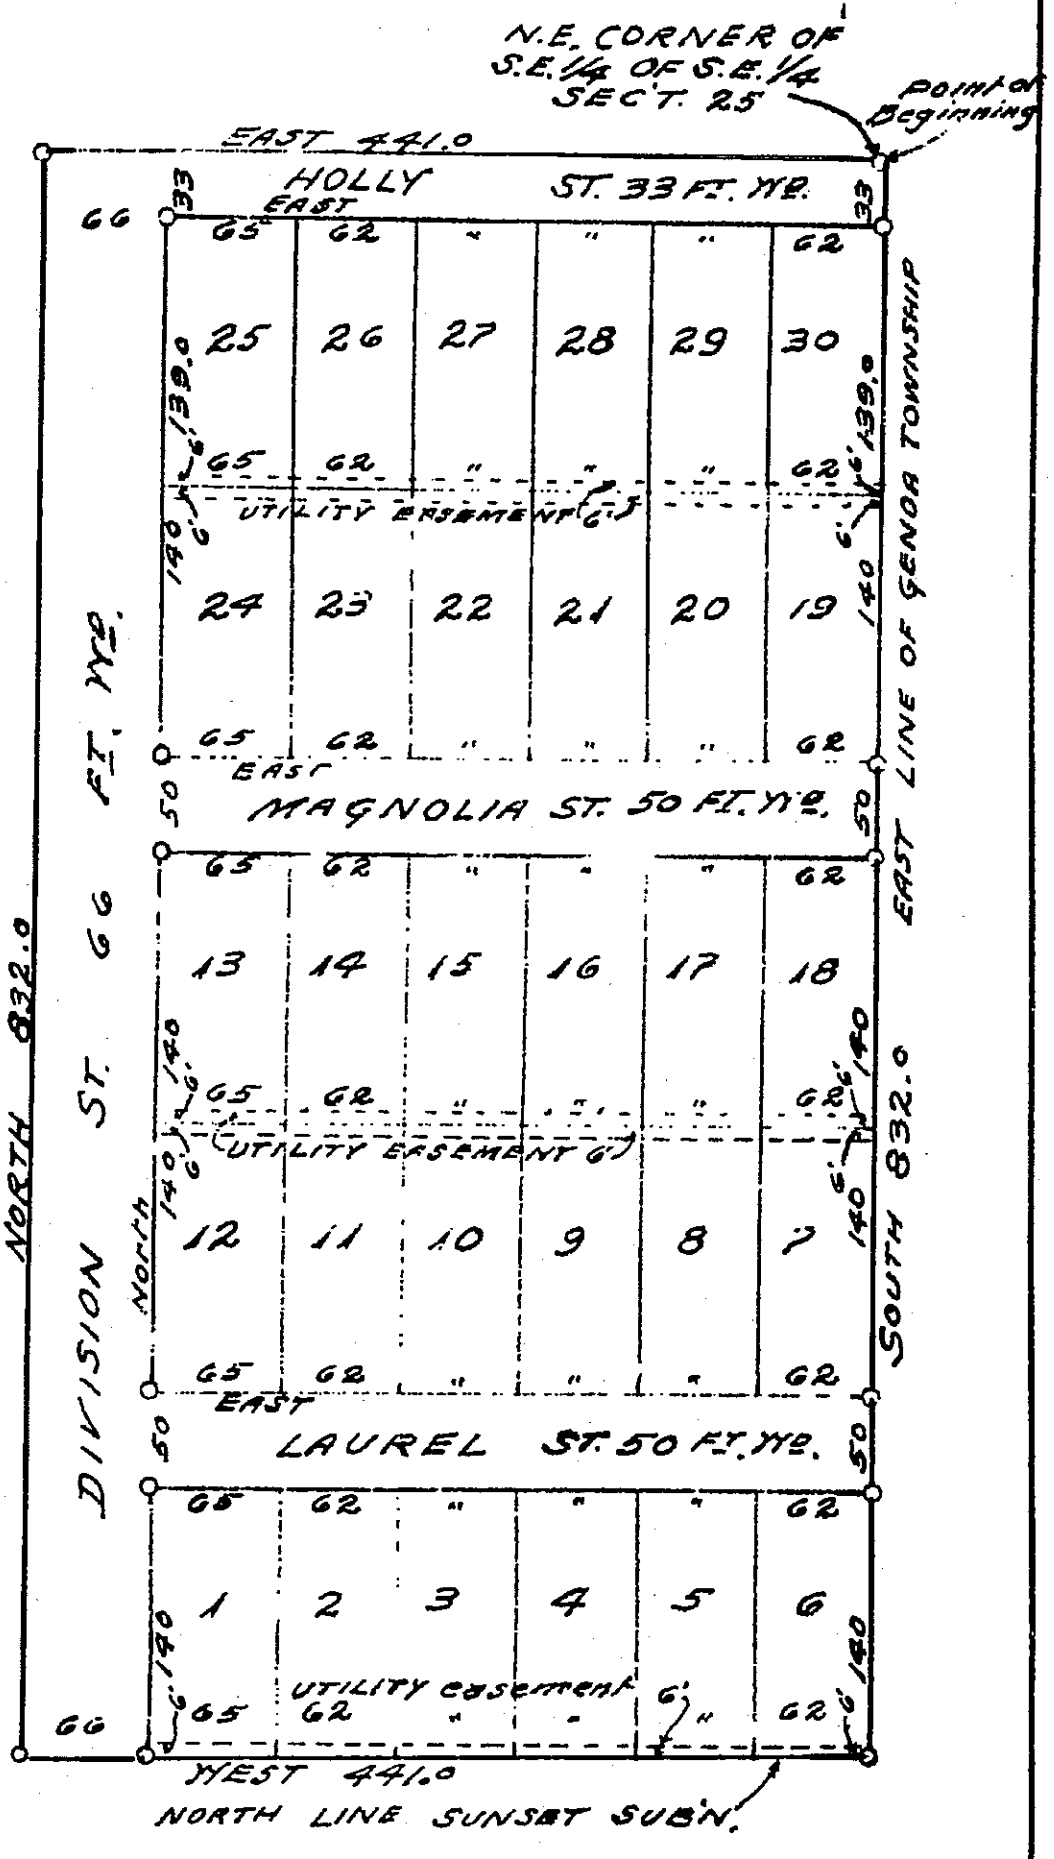 N.E. CORNER OF
S.E. 1/4 OF S.E. 1/4
SEC'T. 25
Point of
Beginning
EAST 441.0
HOLLY ST. 33 FT. WD.
33 33
EAST
66
65 62 " " " 62
25 26 27 28 29 30
139.0 139.0
65 62 " " " 62
6' 6'
UTILITY EASEMENT 6'
6' 6'
140 140
24 23 22 21 20 19
65 62 " " " 62
EAST
50 MAGNOLIA ST. 50 FT. WD. 50
65 62 " " " 62
13 14 15 16 17 18
140 140
6' 6'
65 62 " " " 62
UTILITY EASEMENT 6'
6' 6'
140 140
12 11 10 9 8 7
North
65 62 " " " 62
EAST
50 LAUREL ST. 50 FT. WD. 50
65 62 " " " 62
1 2 3 4 5 6
140 140
UTILITY easement 6'
6' 6'
66
65 62 " " " 62
WEST 441.0
NORTH LINE SUNSET SUB'N.
NORTH 832.0
DIVISION ST. 66 FT. WD.
SOUTH 832.0
EAST LINE OF GENOA TOWNSHIP